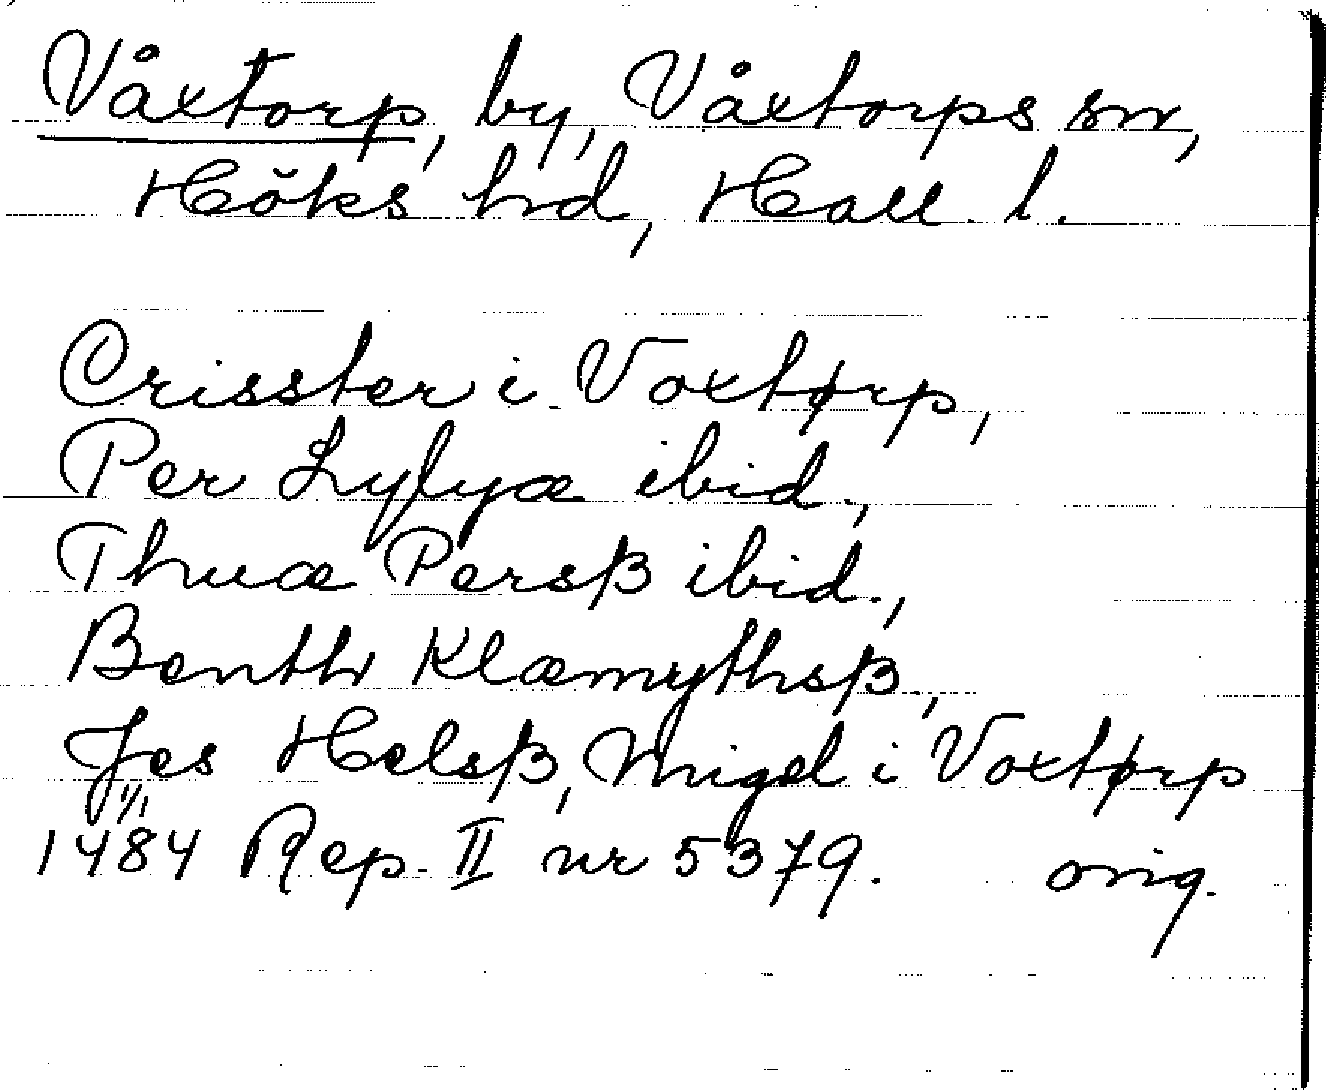 Våxtorp, by, Våxtorps sn,
Höks hd, Hall. l.
Crisster i Voxtørp,
Per Lylyæ ibid.,
Thuæ Persß ibid.,
Benth Klæmythsß,
Jes Helsß, Migel i Voxtørp
1/1
1484 Rep. II nr 5379. orig.